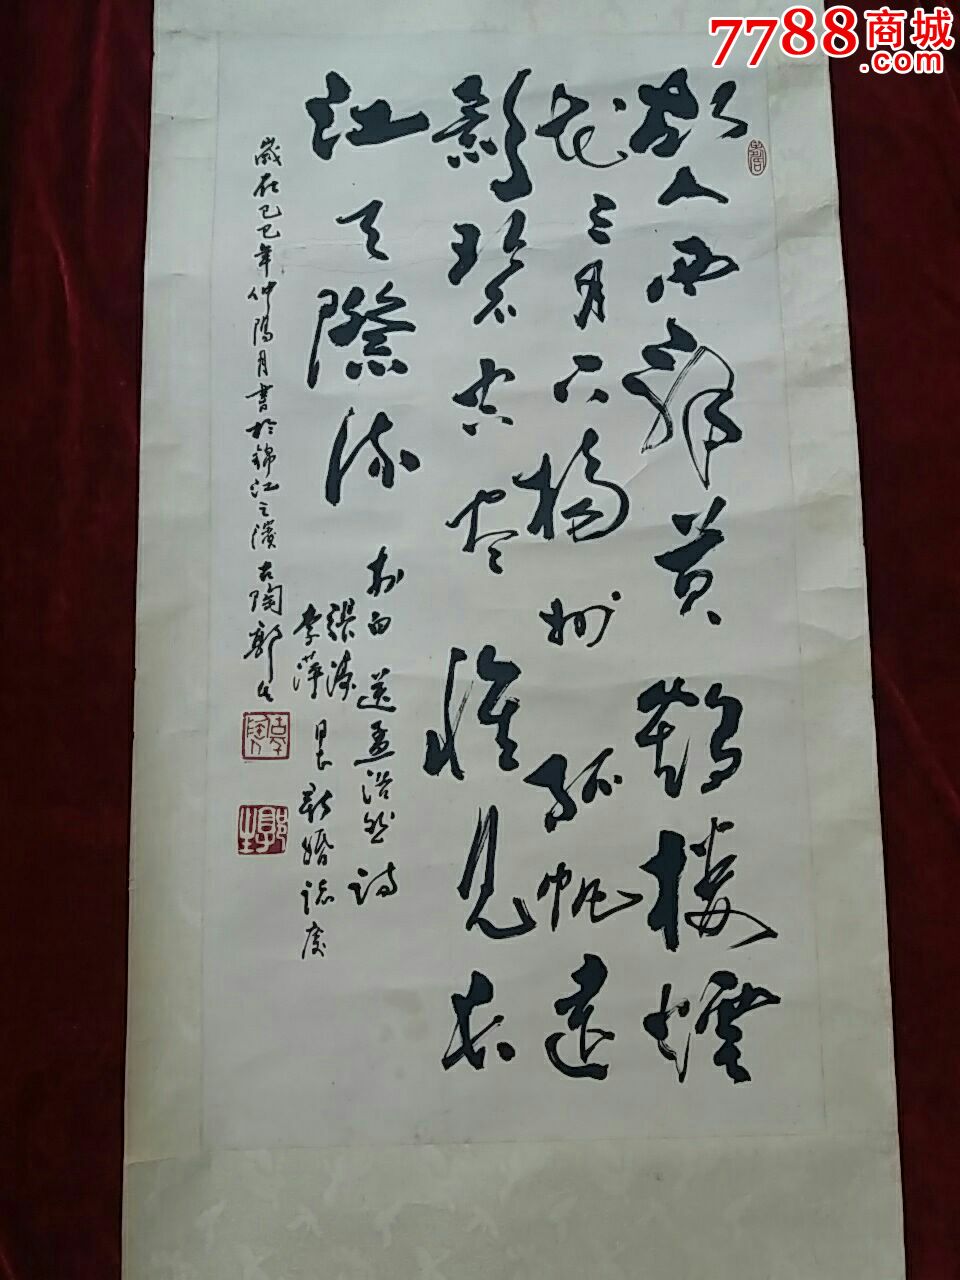 故人西辞黄鹤楼烟
花三月下扬州孤帆远
影碧空尽惟见长
江天际流
李白送孟浩然诗
张涛
李萍
新婚志庆
岁在己巳年仲阳月书于锦江之滨古陶郭生
7788商城
.com